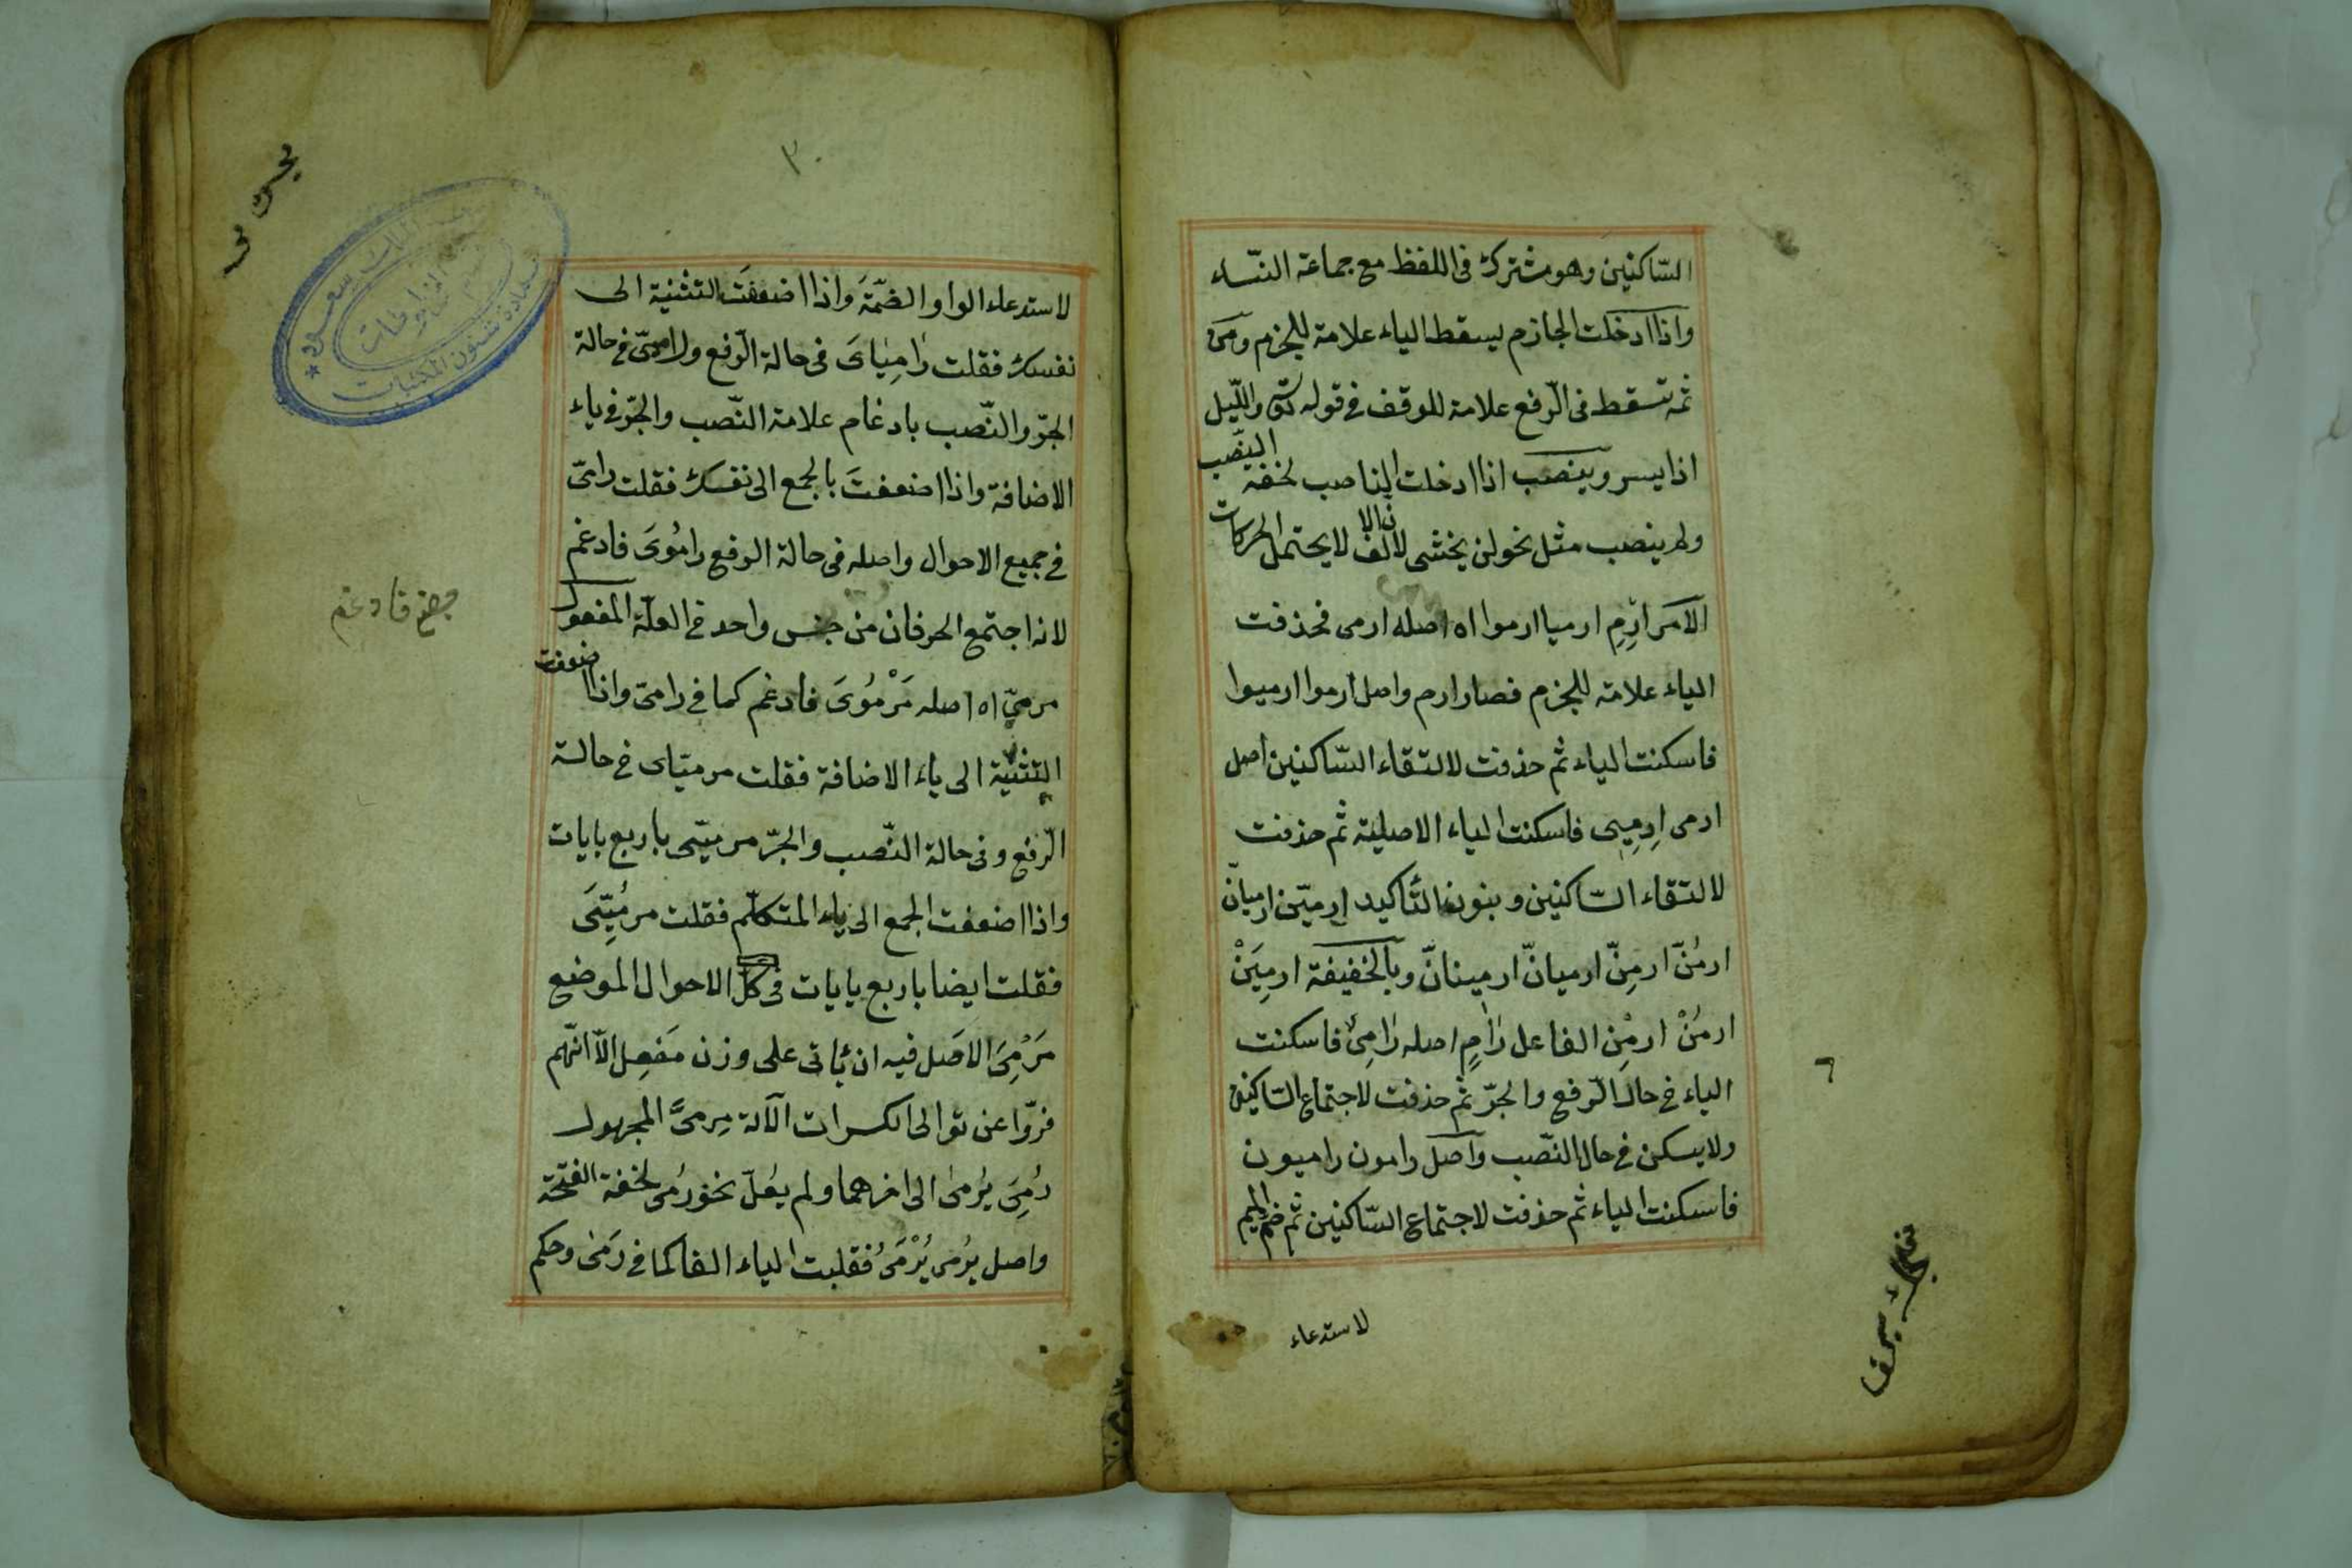 السّاكنين وهو مشترك فى اللفظ مع جماعة النسّاء
واذا ادخلت الجازم يسقط الياء علامة للجزم ومن
ثمه تسقط فى الرّفع علامة للوقف فى قوله تع والليّل
اذا يسر وينصب اذا ادخلت الناصب لخفة النصّب
ولم ينصب مثل نحو لن يخشى لان الالف لا يحتمل الحركات
الامر ارم ارميا ارموا اه اصله ارمى فحذفت
الياء علامة للجزم فصار ارم واصل ارموا ارميوا
فاسكنت الياء ثم حذفت لالتقاء السّاكنين اصل
ارمى ارمِيِى فاسكنت الياء الاصلية ثم حذفت
لالتقاء السّاكنين وبنون التّاكيد ارميّن ارميانّ
ارمُنّ ارمِنّ ارميانّ ارمينانّ وبالخفيفة ارمِيَنْ
ارمُنْ ارمِن الفاعل رَامٍ اصله رَامِىٌ فاسكنت
الياء فى حال الرّفع والجرّ ثم حذفت لاجتماع السّاكنين
ولا يسكن فى حال النّصب واصل رامون راميون
فاسكنت الياء ثم حذفت لاجتماع السّاكنين ثم ضم الميم
لاستدعاء
٣٠
لاستدعاء الواو الضمّة واذا اضعفت التثنية الى
نفسك فقلت رَامِيَاىَ فى حالة الرّفع ورامىّ فى حالة
الجرّ والنّصب بادغام علامة النّصب والجرّ فى ياء
الاضافة واذا اضعفت بالجمع الى نفسك فقلت رامىّ
فى جميع الاحوال واصله فى حالة الرفع رامُوىَ فادغم
لانه اجتمع الحرفان من جنس واحد فى العلّة المفعول
مرمىّ اه اصله مَرْمُوىَ فادغم كما فى رامىّ واذا اضعفت
التثنية الى ياء الاضافة فقلت مرميّاى فى حالة
الرّفع وفى حالة النّصب والجرّ مرميّى باربع يايات
واذا اضعفت الجمع الى ياء المتكلّم فقلت مرمُيِّىَ
فقلت ايضا باربع يايات فى كل الاحوال الموضع
مَرْمِىَ الاصل فيه ان ياتى على وزن مَفعِل الاّ انّهم
فرّوا عن توالى الكسرات الآلة مِرمىً المجهول
رُمِىَ يُرمىٰ الى اخرهما ولم يعُلّ نحو رُمى لخفة الفتحة
واصل يُرمى يُرْمَىُ فقلبت الياء الفا كما فى رَمَى وحكم
فادغم